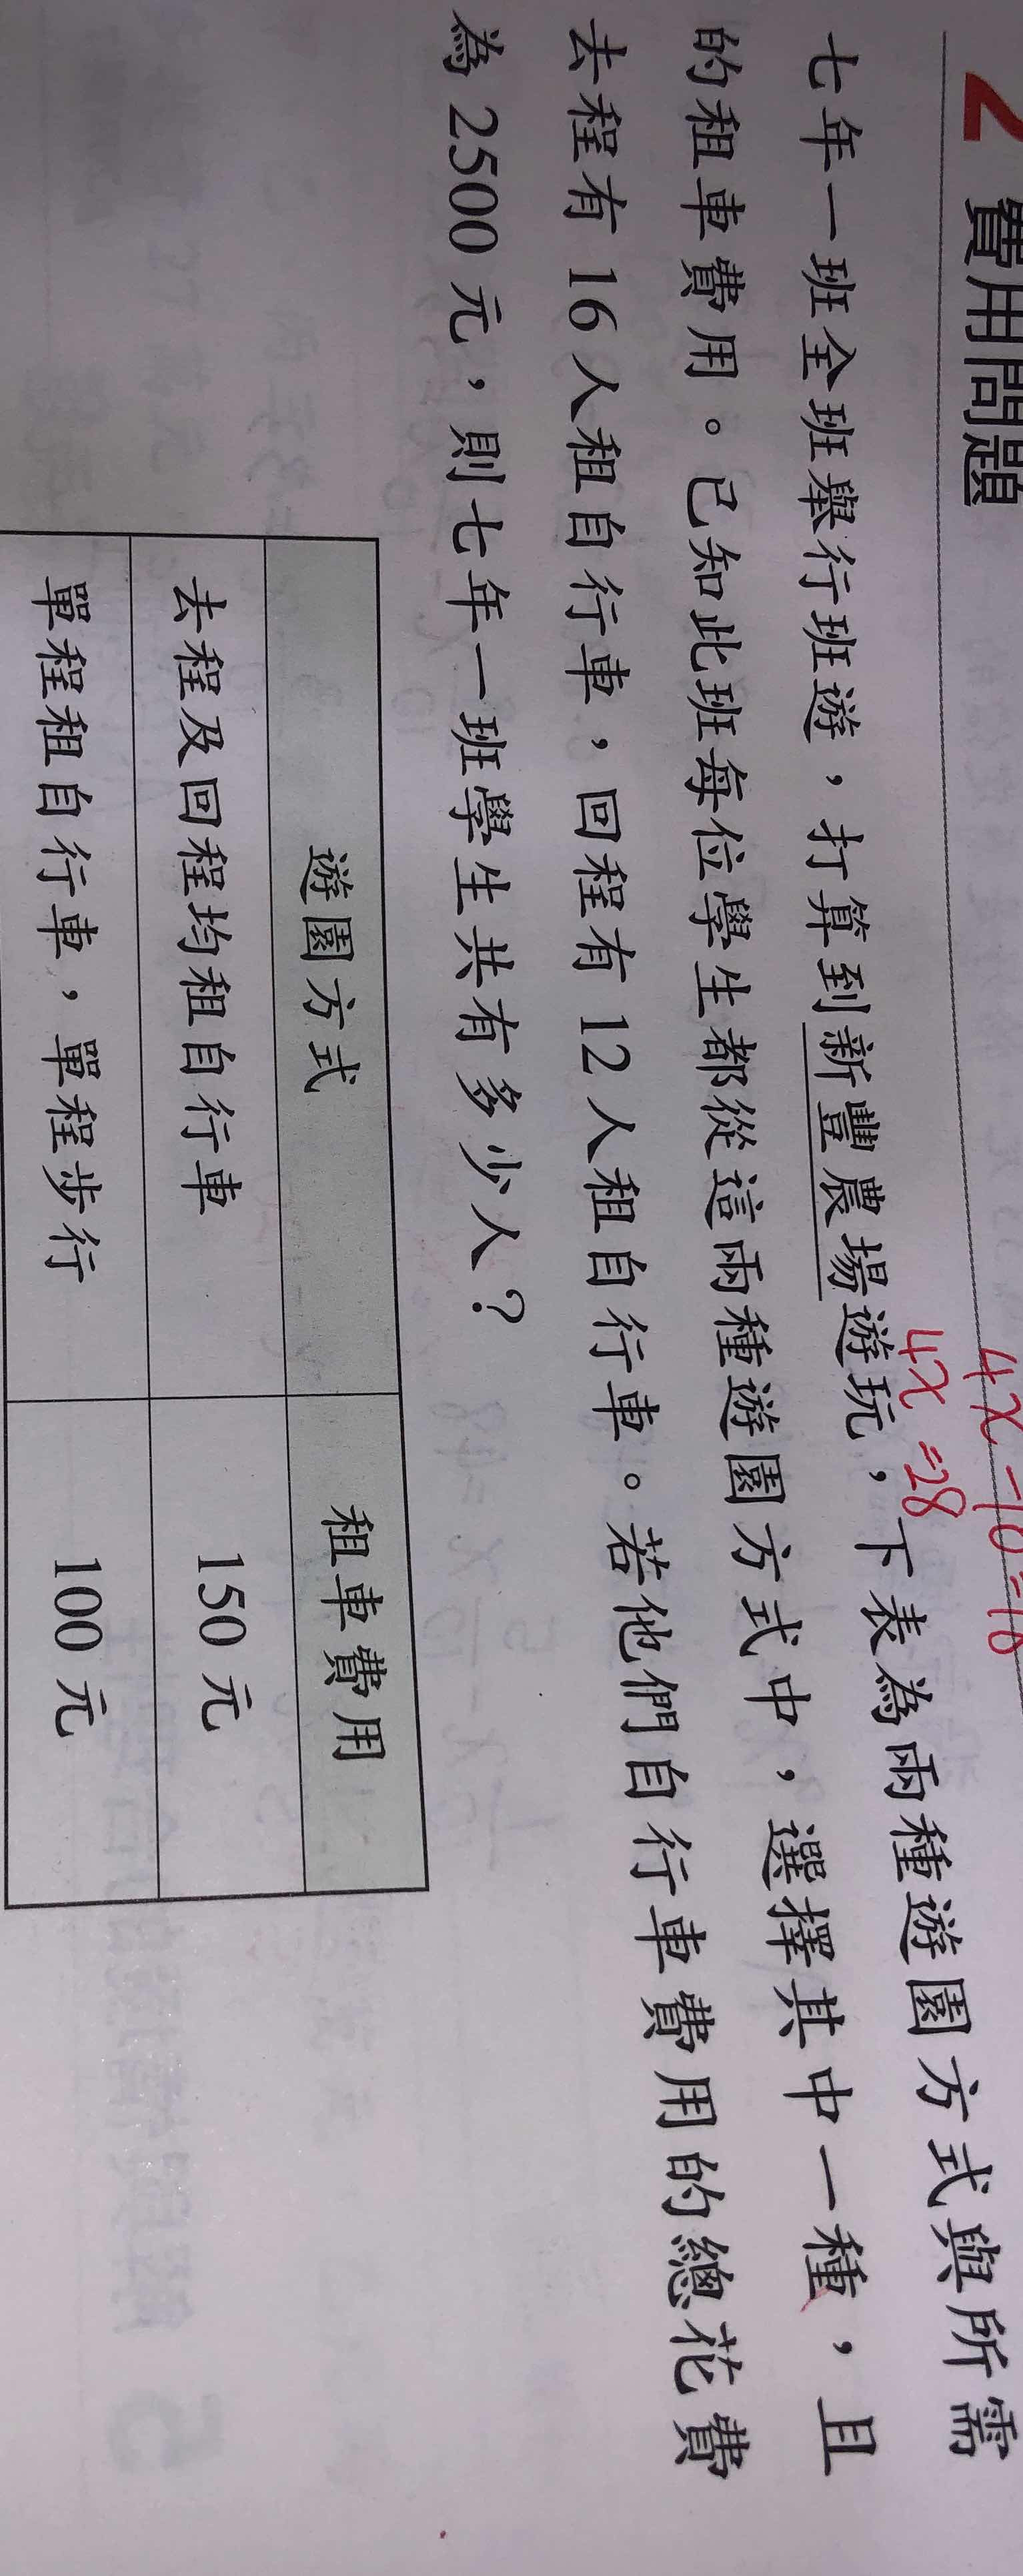 2 費用問題
4x-10=18
4x=28
七年一班全班舉行班遊，打算到新豐農場遊玩，下表為兩種遊園方式與所需
的租車費用。已知此班每位學生都從這兩種遊園方式中，選擇其中一種，且
去程有16人租自行車，回程有12人租自行車。若他們自行車費用的總花費
為2500元，則七年一班學生共有多少人？
遊園方式 租車費用
去程及回程均租自行車 150元
單程租自行車，單程步行 100元